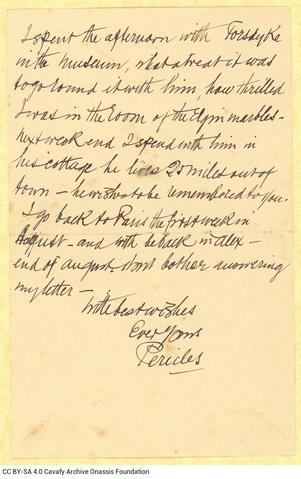 I spent the afternoon with Forsdyke
in the museum, what a treat it was
to go round it with him, how thrilled
I was in the Room of the Elgin marbles -
next week end I spend with him in
his cottage he lives 25 miles out of
town - he wishes to be remembered to you.
I go back to Paris the first week in
August - and will be back in Alex -
end of august, don't bother answering
my letter -
With best wishes
Ever Yours
Pericles
CC BY-SA 4.0 Cavafy Archive Onassis Foundation